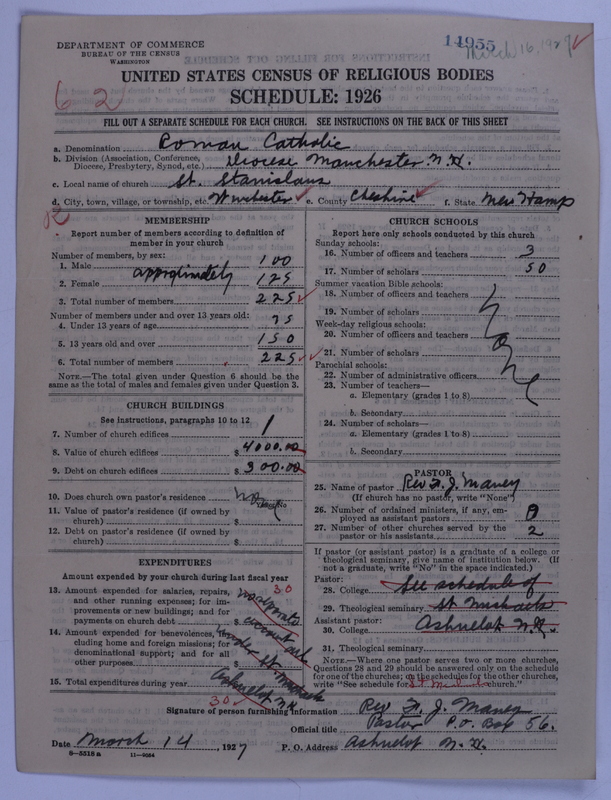 DEPARTMENT OF COMMERCE
BUREAU OF THE CENSUS
WASHINGTON
14955
March 16, 1927
UNITED STATES CENSUS OF RELIGIOUS BODIES
SCHEDULE: 1926
62
FILL OUT A SEPARATE SCHEDULE FOR EACH CHURCH. SEE INSTRUCTIONS ON THE BACK OF THIS SHEET
a. Denomination Roman Catholic
b. Division (Association, Conference, Diocese, Presbytery, Synod, etc.) Diocese Manchester N.H.
c. Local name of church St. Stanislaus
d. City, town, village, or township, etc. Winchester e. County Cheshire f. State New Hamps
MEMBERSHIP
Report number of members according to definition of member in your church
Number of members, by sex:
1. Male 100
approximately
2. Female 125
3. Total number of members 225
Number of members under and over 13 years old:
4. Under 13 years of age 75
5. 13 years old and over 150
6. Total number of members 225
NOTE.—The total given under Question 6 should be the same as the total of males and females given under Question 3.
CHURCH BUILDINGS
See instructions, paragraphs 10 to 12
7. Number of church edifices 1
8. Value of church edifices $ 4000.00
9. Debt on church edifices $ 300.00
10. Does church own pastor's residence No
11. Value of pastor's residence (if owned by church) $
12. Debt on pastor's residence (if owned by church) $
EXPENDITURES
Amount expended by your church during last fiscal year
13. Amount expended for salaries, repairs, and other running expenses; for improvements or new buildings; and for payments on church debt $
30
no separate
account
14. Amount expended for benevolences, including home and foreign missions; for denominational support; and for all other purposes $
under St. Michaels
Ashuelot N.H.
15. Total expenditures during year $
30
CHURCH SCHOOLS
Report here only schools conducted by this church
Sunday schools:
16. Number of officers and teachers 3
17. Number of scholars 50
Summer vacation Bible schools:
18. Number of officers and teachers
19. Number of scholars
Week-day religious schools:
20. Number of officers and teachers
21. Number of scholars
None
Parochial schools:
22. Number of administrative officers
23. Number of teachers—
a. Elementary (grades 1 to 8)
b. Secondary
24. Number of scholars—
a. Elementary (grades 1 to 8)
b. Secondary
PASTOR
25. Name of pastor Rev. F. J. Maney
(If church has no pastor, write "None")
26. Number of ordained ministers, if any, employed as assistant pastors 0
27. Number of other churches served by the pastor or his assistants 2
If pastor (or assistant pastor) is a graduate of a college or theological seminary, give name of institution below. (If not a graduate, write "No" in the space indicated.)
Pastor:
28. College See schedule of
29. Theological seminary St Michaels
Assistant pastor:
30. College Ashuelot N.H.
31. Theological seminary
NOTE.—Where one pastor serves two or more churches, Questions 28 and 29 should be answered only on the schedule for one of the churches; on the schedules for the other churches, write "See schedule for St Michaels church."
Signature of person furnishing information Rev F. J. Maney
Official title Pastor P.O. Box 56.
Date March 14, 1927 P. O. Address Ashuelot N.H.
8—5518 a 11—9064